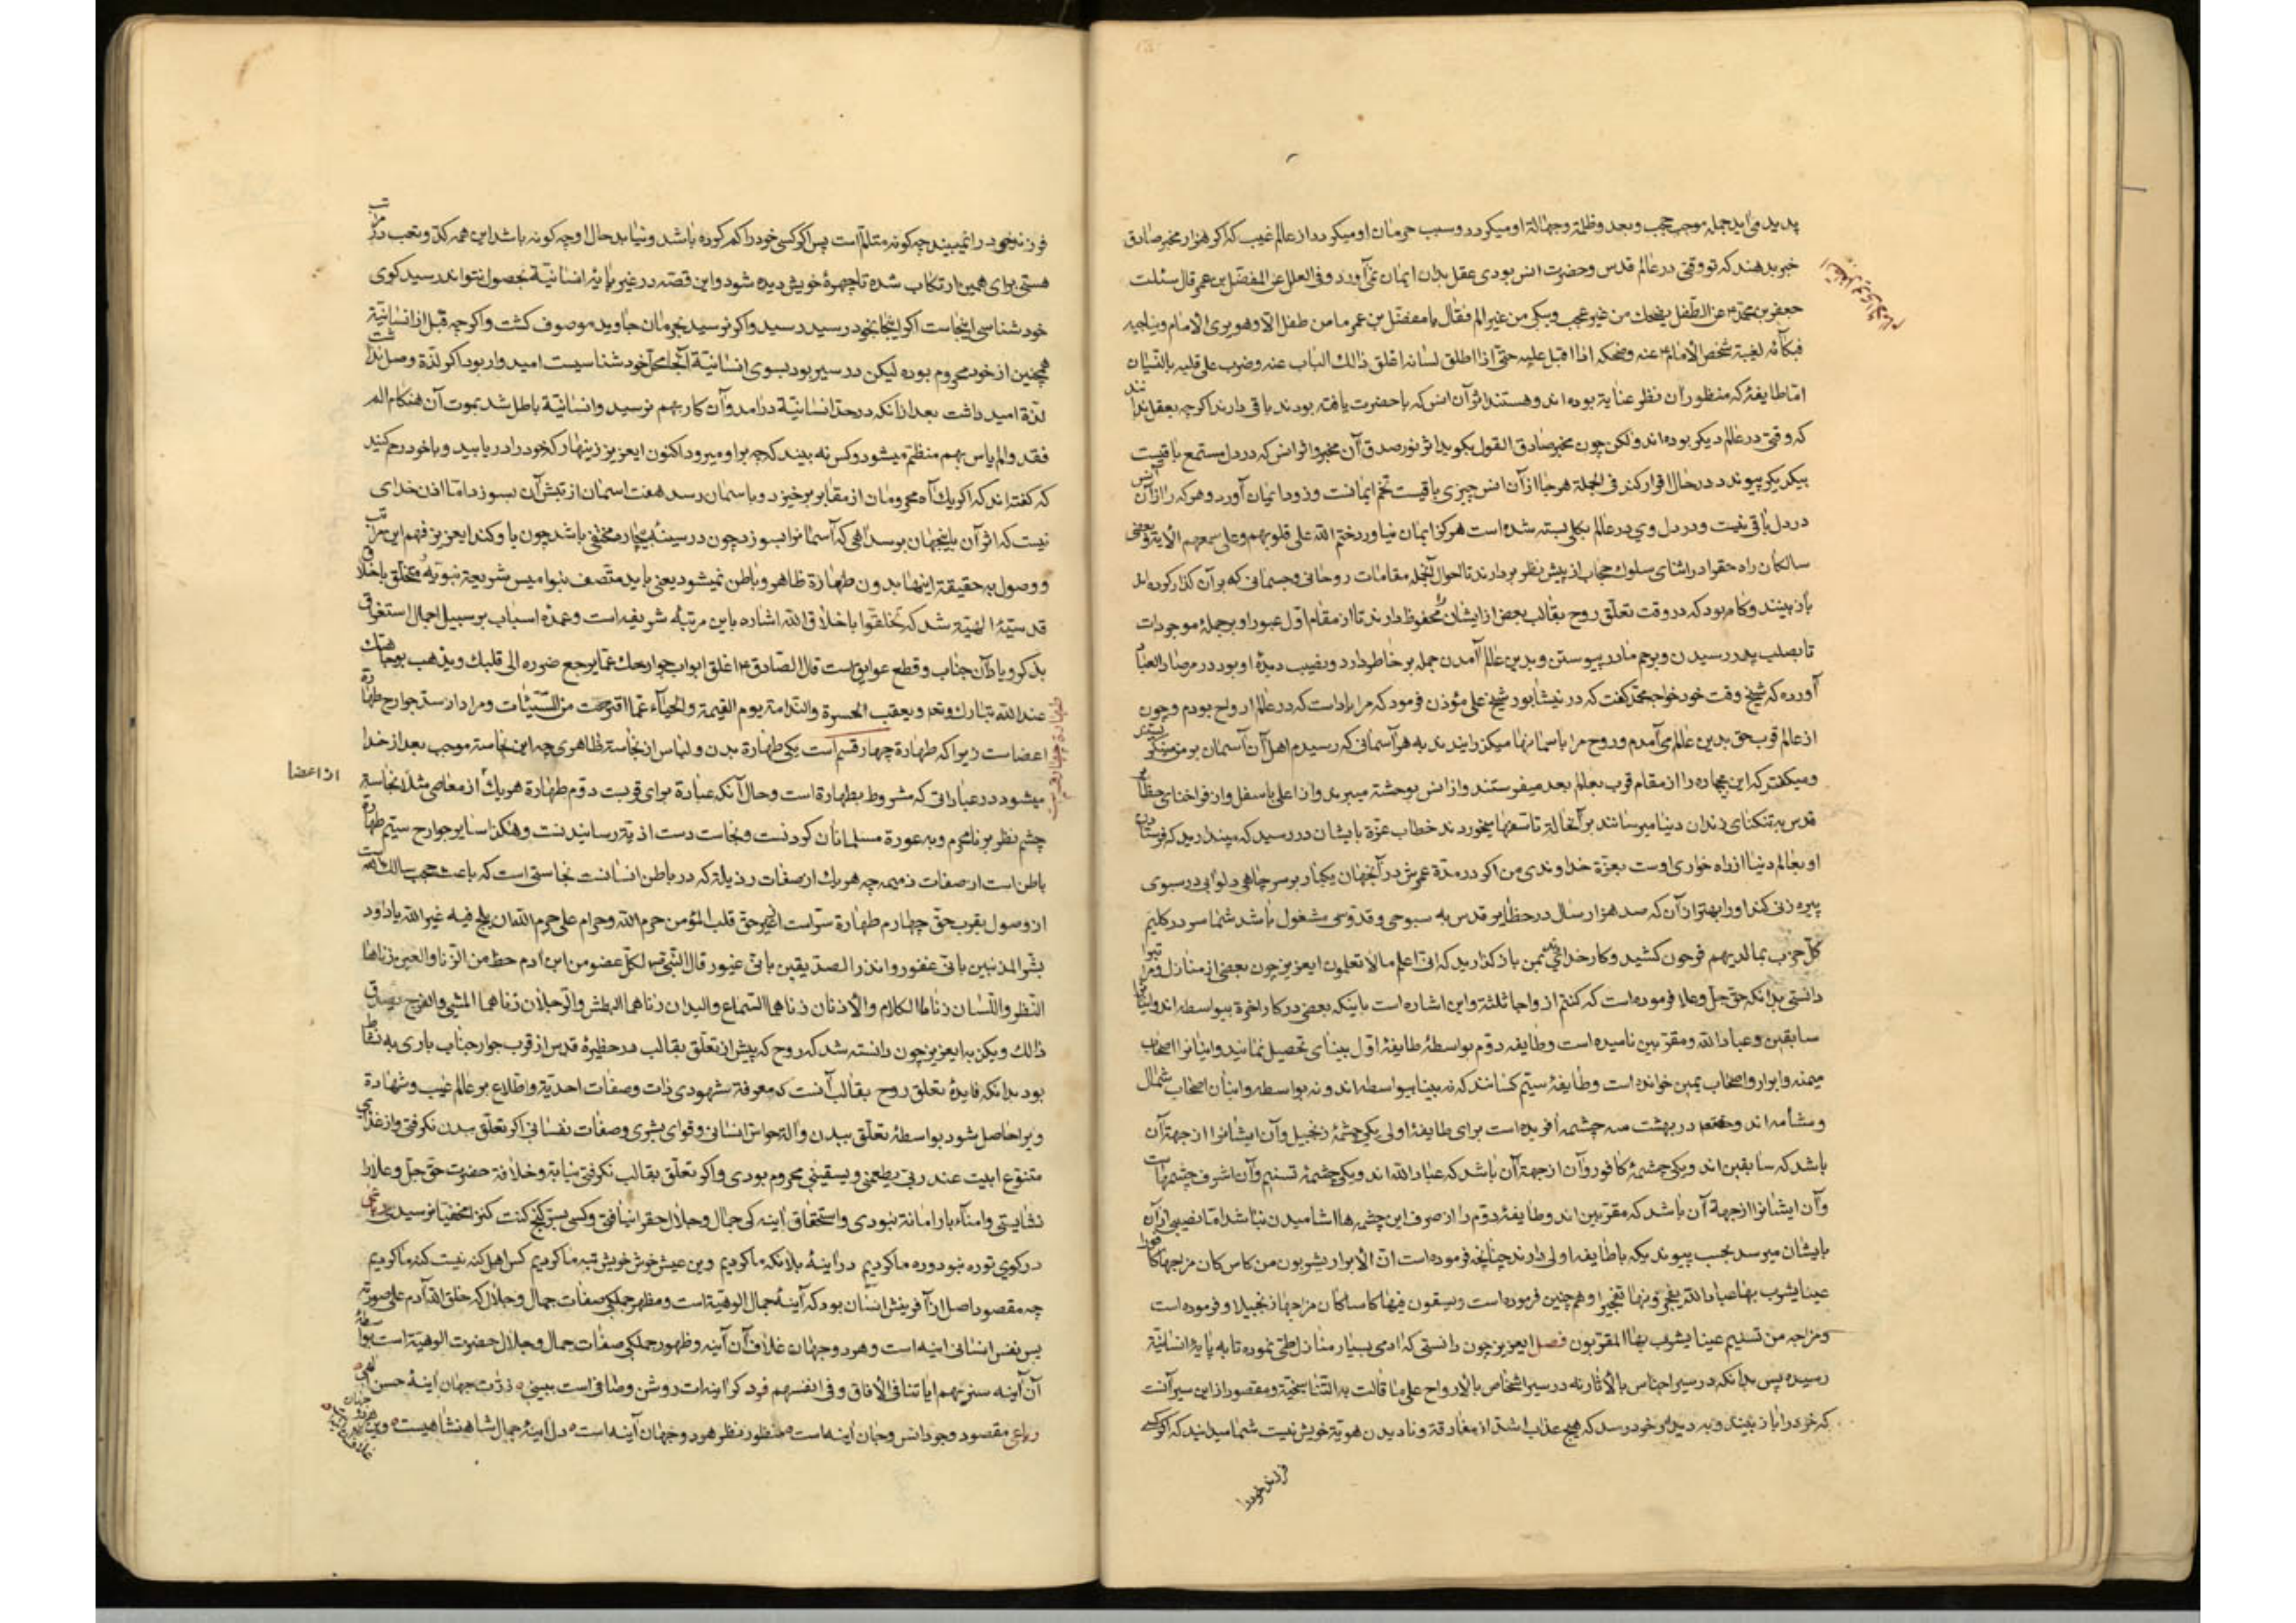 پدید می آید جمله موجب حجب و بعد و ظلمة و جهالة او میکردد و سبب حرمان او میکردد از عالم غیب که اکر هزار مخبر صادق
خبر بدهند که تو وقتی در عالم قدس و حضرت انس بودی عقل بدان ایمان نمی آورد و فی العلل عن المفضل بن عمر قال سئلت
جعفر بن محمد عن الطفل یضحك من غیر عجب و یبکی من غیر الم فقال یا مفضل بن عمر ما من طفل الا و هو یری الامام و یناجیه
فبکائه لغیبة شخص الامام عنه و ضحکه اذا اقبل علیه حتی اذا اطلق لسانه اغلق ذالك الباب عنه و ضرب علی قلبه بالنسیان
اما طایفۀ که منظوران نظر عنایة بوده اند و هستند اثر آن انس که با حضرت یافته بودند باقی دارند اکرچه بعقل ندانند
که وقتی در عالم دیکر بوده اند ولکن چون مخبر صادق القول بکوید اثر نور صدق آن مخبر و اثر انس که در دل مستمع باقیست
بیکدیکر پیوندد در حال اقرار کند فی الجملة هر جا از آن انس چیزی باقیست تخم ایمانست و زود ایمان آورد و هر که را از آن انس
در دل باقی نیست و در دل وی در عالم بکلی بسته شده است هرکز ایمان نیاورد ختم الله علی قلوبهم و علی سمعهم الآیة و بعضی
سالکان راه حق را در اثنای سلوك حجاب از پیش نظر بردارند تا احوال آنجمله مقامات روحانی و جسمانی که بر آن کذر کرده اند
باز بینند و کاه بود که در وقت تعلق روح بقالب بعض از ایشان محفوظ دارند تا از مقام اول عبور او بر جملۀ موجودات
تا بصلب پدر رسیدن و برحم مادر پیوستن و بدین عالم آمدن جمله بر خاطر دارد و نصیب دیدۀ او بود در مرصاد العباد
آورده که شیخ وقت خود خواجه محمد کفت که در نیشابور شیخ علی مؤذن فرمود که مرا یاد است که در عالم ارواح بودم و چون
از عالم قرب حق بدین عالم می آمدم و روح مرا باسمانها میکذرانیدند به هر آسمانی که رسیدم اهل آن آسمان بر من میکریستند
و میکفتند که این بیچاره را از مقام قرب بعالم بعد میفرستند و از انس بوحشة میبرند و از اعلی باسفل و از فراخنای حظایر
قدس به تنکنای زندان دنیا میرسانند بر آنحالة تاسفها میخوردند خطاب عزة بایشان در رسید که مپندارید که فرستادن
او بعالم دنیا از راه خواری اوست بعزة خداوندی من که اکر در مدة عمرش در آنجهان یکبار بر سر چاهی دلوابی در سبوی
پیره زنی کند او را بهتر از آن که صد هزار سال در حظایر قدس به سبوحی و قدوسی مشغول باشد شما سر در کلیم
کل حزب بما لدیهم فرحون کشید و کار خدائی بمن باز کذارید که انی اعلم ما لا تعلمون ایعزیز چون بعضی از منازل و مراتب را
دانستی بدانکه حق جل و علا فرموده است که کنتم ازواجا ثلثة و این اشاره است باینکه بعض در کار اخرة بیواسطه اند و اینانرا
سابقین و عباد الله و مقربین نامیده است و طایفه دوم بواسطۀ طایفۀ اول بینائی تحصیل نمایند و اینانرا اصحاب
میمنه و ابرار و اصحاب یمین خوانده است و طایفۀ سیم کسانند که نه بینا بیواسطه اند و نه بواسطه و اینان اصحاب شمال
و مشأمه اند در بهشت سه چشمه آفریده است برای طایفۀ اولی یکی چشمۀ زنجبیل و آن ایشانرا از جهة آن
باشد که سابقین اند و یکی چشمۀ کافور و آن از جهة آن باشد که عباد الله اند و یکی چشمۀ تسنیم و آن اشرف چشمهاست
و آن ایشانرا از جهة آن باشد که مقربین اند و طایفۀ دوم را از صرف این چشمه ها اشامیدن نباشد اما نصیبی از آن
بایشان میرسد بحسب پیوندیکه باطایفه اولی دارند چنانچه فرموده است ان الابرار یشربون من کاس کان مزاجها کافورا
عینا یشرب بها عباد الله یفجرونها تفجیرا و همچنین فرموده است و یسقون فیها کاسا کان مزاجها زنجبیلا و فرموده است
و مزاجه من تسنیم عینا یشرب بها المقربون فصل ایعزیز چون دانستی که ادمی بسیار منازل طی نموده تا به پایۀ انسانیة
رسیده پس بدانکه در سیر اجناس بالآثار نه در سیر اشخاص بالارواح علی ما قالت به التناسخیة و مقصود از این سیر آنست
که خود را باز بیند و به دیدار خود رسد که هیچ عذاب اشد از مفارقة و نادیدن هویة خویش نیست شما میدانید که اکر کسی
فرزند خود را
فرزند خود را نمیبیند چه کونه متألم است پس اکر کسی خود را کم کرده باشد و نیابد حال او چه کونه باشد این همه کد و تعب در مراتب
هستی برای همین ارتکاب شده تا چهرۀ خویش دیده شود و این قصه در غیر پایۀ انسانیة بحصول نتواند رسید کوی
خود شناسی اینجاست اکر اینجا بخود رسید رسید و اکر نرسید بحرمان جاوید موصوف کشت و اکرچه قبل از انسانیة
همچنین از خود محروم بوده لیکن در سیر بود بسوی انسانیة آنجا محل خود شناسیست امیدوار بود اکر لذة وصل نداشت
لذة امید داشت بعد از آنکه در حد انسانیة درامد و آن کار بهم نرسید و انسانیة باطل شد بموت آن هنکام الم
فقد و الم یاس بهم منظم میشود و کس نه بیند که چه بر او میرود اکنون ایعزیز زینهار که خود را دریابید و با خود رحم کنید
که کفته اند که اکر یك آه محرومان از مقابر برخیزد و باسمان رسد هفت اسمان از تبش آن بسوزد اما اذن خدای
نیست که اثر آن باینجهان برسد اهی که آسمانرا بسوزد چون در سینۀ بیچاره مختفی باشد چون با او کند ایعزیز فهم این مراتب
و وصول به حقیقة اینها بدون طهارة ظاهر و باطن نمیشود یعنی باید متصف بنوامیس شریعة نبویه و متخلق باخلاق
قدسیۀ الهیة شد که تخلقوا باخلاق الله اشاره باین مرتبۀ شریفه است و عمده اسباب بر سبیل اجمال استغراق
بذکر و یاد آن جناب و قطع عوایق است قال الصادق اغلق ابواب جوارحك عما یرجع ضرره الی قلبك و یذهب بوجاهتك
عند الله تبارك و تعالی و یعقب الحسرة و الندامة یوم القیمة و الحیاء عما اقترحت من السیئات و مراد از سد جوارح طهارة
اعضاست زیرا که طهارة چهار قسم است یکی طهارة بدن و لباس از نجاسة ظاهری چه این نجاسة موجب بعد از خدا
میشود در عباداتی که مشروط بطهارة است و حال آنکه عبادة برای قربت دوم طهارة هر یك از معاصی مثلا نجاسة
از اعضا
چشم نظر بر نامحرم و به عورة مسلمانان کردنست و نجاست دست اذیة رسانیدنست و هکذا سایر جوارح سیم طهارة
باطن است از صفات ذمیمه چه هر یك از صفات رذیلة که در باطن انسانست نجاستی است که باعث حجب سالك است
از وصول بقرب حق چهارم طهارة سر است از غیر حق قلب المؤمن حرم الله و حرام علی حرم الله ان یلج فیه غیر الله یا داود
بشر المذنبین بانی غفور و انذر الصدیقین بانی غیور قال النبی لکل عضو من ابن آدم حظ من الزنا و العین زناها
النظر و اللسان زناها الکلام و الاذنان زناهما السماع و الیدان زناهما البطش و الرجلان زناهما المشی و الفرج یصدق
ذالك و یکذبه ایعزیز چون دانسته شد که روح که پیش از تعلق بقالب در حظیرۀ قدس از قرب جوار جناب باری
بود بدانکه فایدۀ تعلق روح بقالب آنست که معرفة شهودی ذات و صفات احدیة و اطلاع بر عالم غیب و شهادة
ویرا حاصل شود بواسطۀ تعلق ببدن و آلة حواس انسانی و قوای بشری و صفات نفسانی اکر تعلق ببدن نکرفتی و از غذای
متنوع ابیت عند ربی یطعمنی و یسقینی محروم بودی و اکر تعلق بقالب نکرفتی نیابة و خلافة حضرت حق جل و علا را
نشایستی
در کوی تو ره نبود ره ما کردیم در اینۀ بلا نکه ما کردیم وین عیش خوش خویش تبه ما کردیم کس را کنه نیست کنه ما کردیم
چه مقصود اصل از آفرینش انسان بود که آینۀ جمال الوهیة است و مظهر جملکی صفات جمال و جلال که خلق الله آدم علی صورته
پس نفس انسانی اینه است و هر دو جهان غلاف آن آینه و ظهور جملکی صفات جمال و جلال حضرت الوهیة است بواسطۀ
آن آینه سنریهم ایاتنا فی الافاق و فی انفسهم ذرت جهان اینۀ حسن الهی
رباعی مقصود وجود انس و جان اینه است منظور نظر هر دو جهان آینه است دل اینۀ جمال شاهنشاهیست وین هر دو جهان غلاف آن
طهارة چهار قسم است